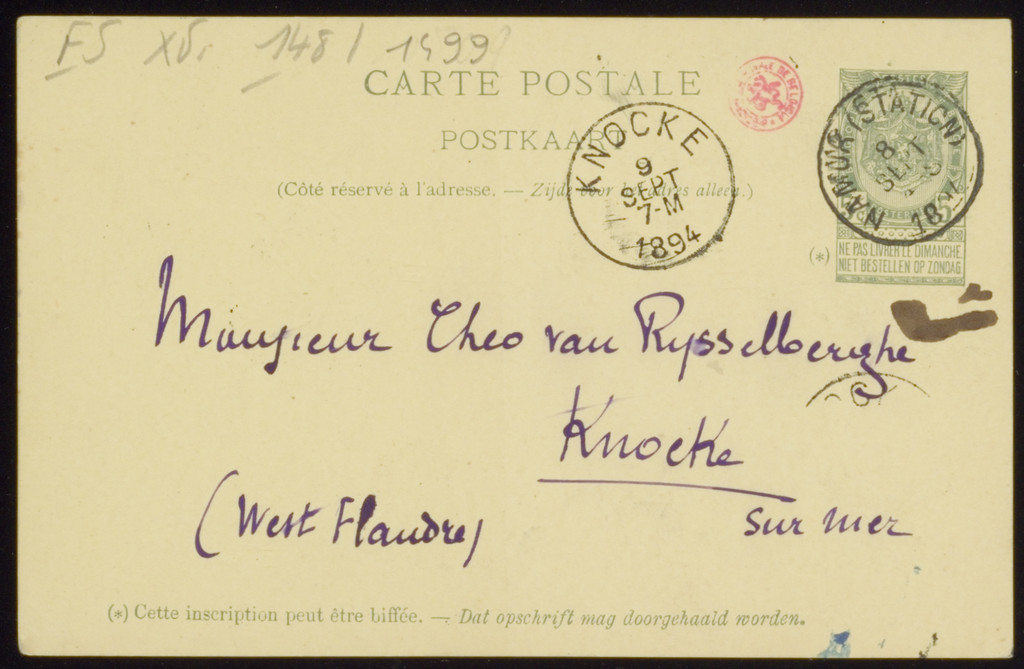 FS XVI 148/1499
CARTE POSTALE
POSTKAART
(Côté réservé à l'adresse. — Zijde voor het adres alleen.)
KNOCKE
9
SEPT
7-M
1894
NAMUR (STATION)
8
SEPT
189
(*)
NE PAS LIVRER LE DIMANCHE
NIET BESTELLEN OP ZONDAG
Monsieur Theo van Rysselberghe
Knocke
sur mer
(West Flandre)
(*) Cette inscription peut être biffée. — Dat opschrift mag doorgehaald worden.